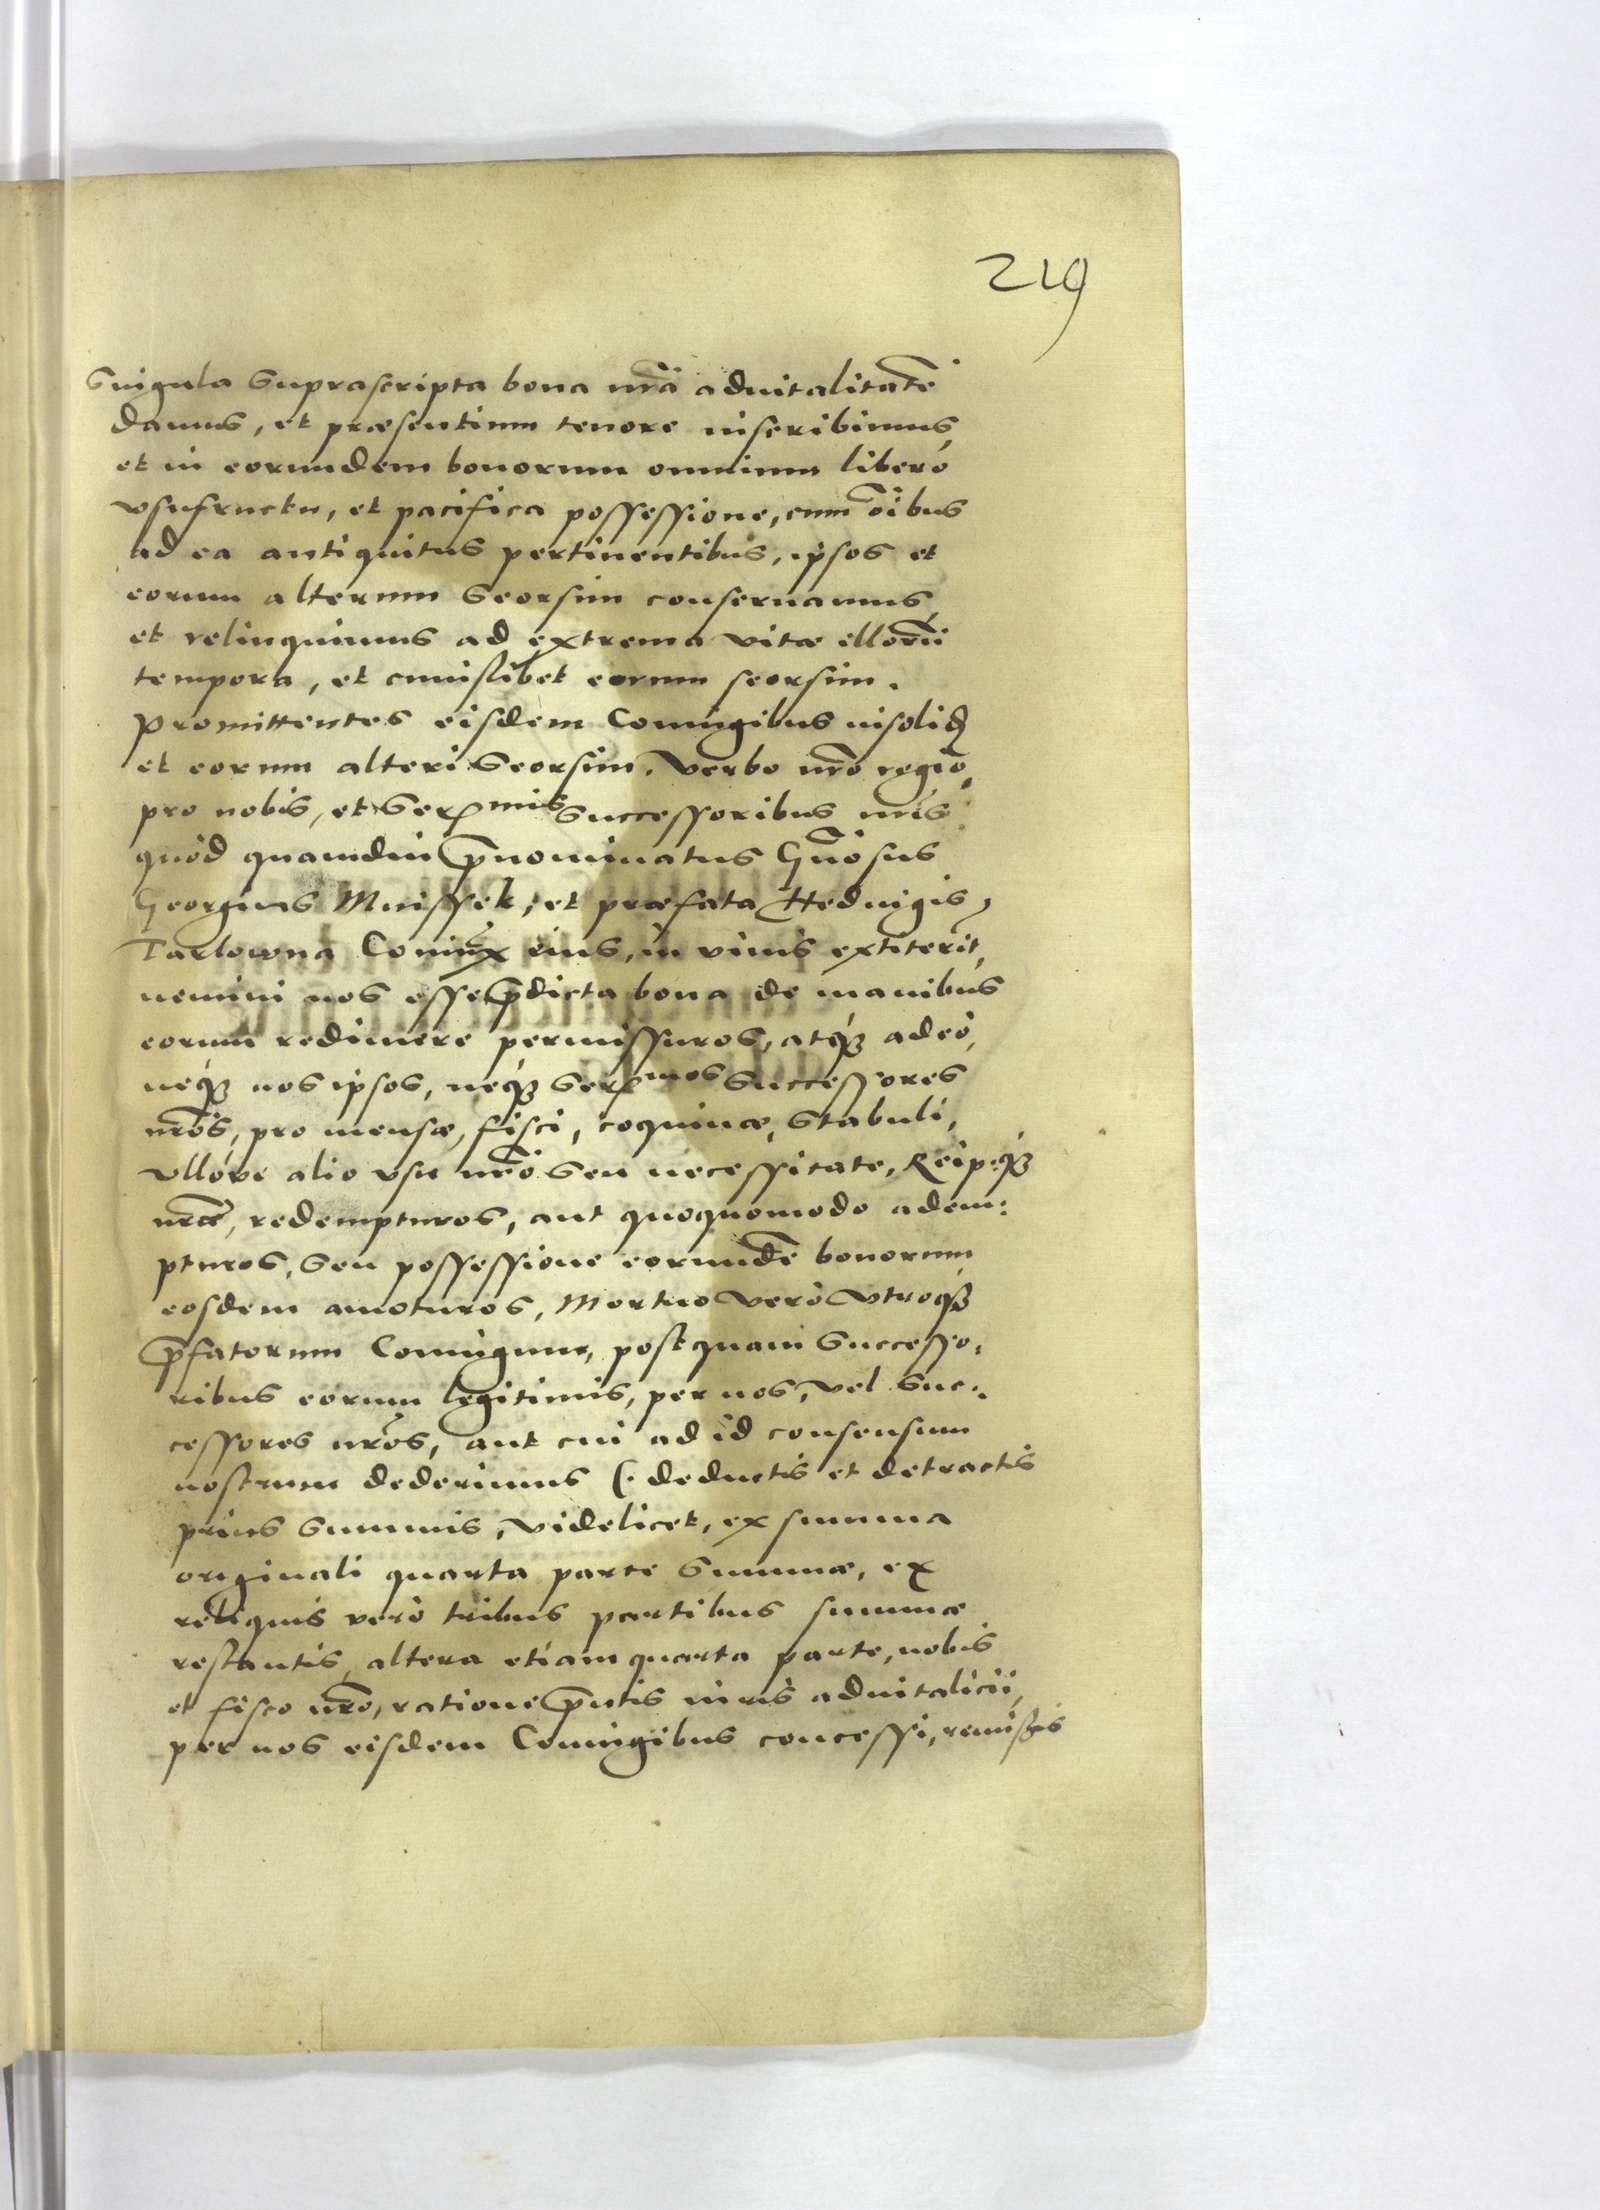 219
Singula Suprascripta bona nrã aduitalitatẽ
damus, et præsentium tenore inscribimus,
et in eorundem bonorum omnium liberó
vsufructu, et pacifica possessione, cum oĩbus
ad ea antiquitus pertinentibus, ipsos et
eorum alterum Seorsim conseruamus,
et relinquimus ad extrema vitæ illorũ
tempora, et cuiuslibet eorum seorsim.
Promittentes eisdem Coniugibus insolid
et eorum alteri Seorsim. Verbo nrõ regiõ,
pro nobis, et Ser mis Successoribus nrĩs
quòd quamdiu p̃nominatus Gñosus
Georgius Mnissek, et præfata Heduigis
Tarlowna Coniux eius, in viuis extiterĩt,
nemini nos esse p̃dicta bona de manibus
eorum redimere permissuros, atq₃ adeò,
neq₃ nos ipsos, neq₃ Ser mos Successores
nrõs, pro mensæ, fisci, coquinæ, Stabuli,
vlloúe alio vsu nrõ Seu necessitate, Reip: q₃
nræ̃, redempturos, aut quoquomodo adem:
pturos, Seu possessione eorundẽ bonorum
eosdem amoturos, Mortuo verò Vtroq₃
p̃fatorum Coniugum, postquam Successo:
ribus eorum legitimis, per nos, vel Suc:
cessores nrõs, aut cui ad id consensum
nostrum dederimus (: deductis et detractis
prius Summis, videlicet, ex summa
originali quarta parte Summæ, ex
reliquis verò tribus partibus summæ
restantis, altera etiam quarta parte, nobis
et fisco nrõ, ratione p̃ntis iuris aduitalicii,
per nos eisdem Coniugibus concessi, remissis